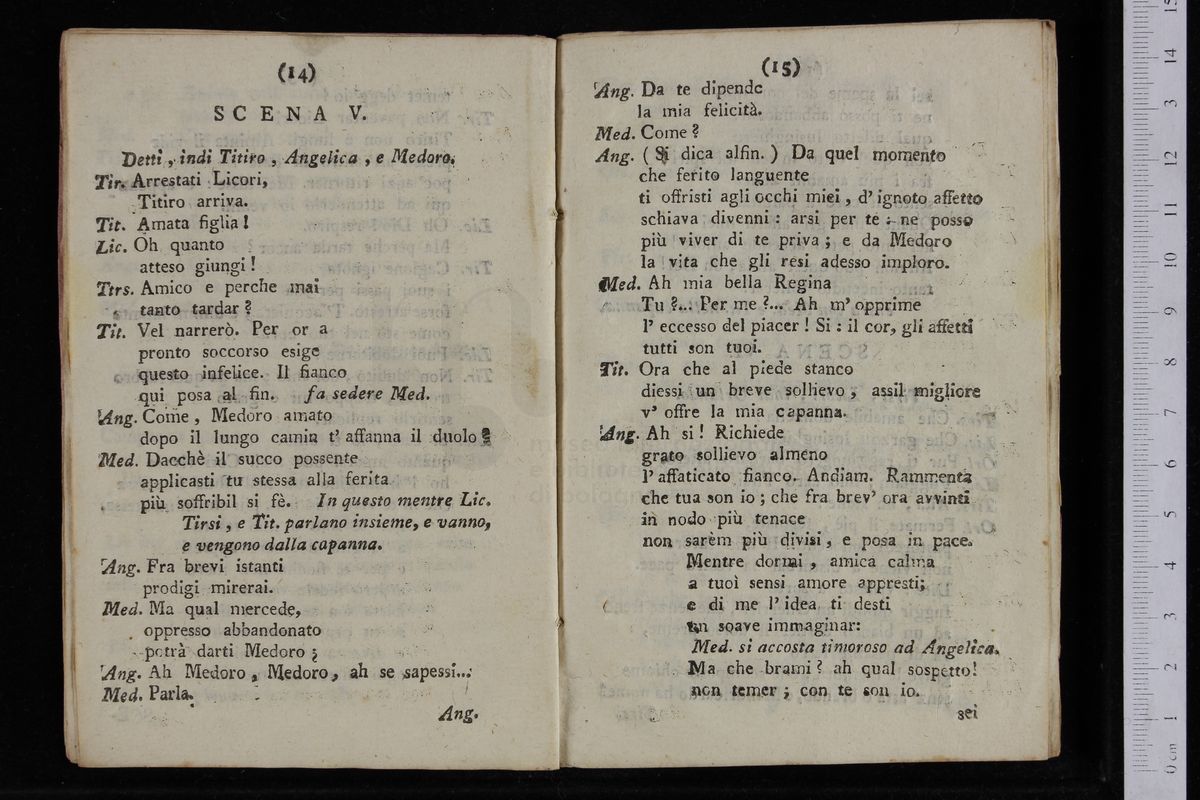 (14)
SCENA V.
Detti, indi Titiro, Angelica, e Medoro.
Tir. Arrestati Licori,
Titiro arriva.
Tit. Amata figlia!
Lic. Oh quanto
atteso giungi!
Ttrs. Amico e perche mai
tanto tardar?
Tit. Vel narrerò. Per or a
pronto soccorso esige
questo infelice. Il fianco
qui posa al fin. fa sedere Med.
Ang. Come, Medoro amato
dopo il lungo camin t' affanna il duolo?
Med. Dacchè il succo possente
applicasti tu stessa alla ferita
più soffribil si fè. In questo mentre Lic.
Tirsi, e Tit. parlano insieme, e vanno,
e vengono dalla capanna.
Ang. Fra brevi istanti
prodigi mirerai.
Med. Ma qual mercede,
oppresso abbandonato
potrà darti Medoro;
Ang. Ah Medoro, Medoro, ah se sapessi...
Med. Parla.
Ang.
(15)
Ang. Da te dipende
la mia felicità.
Med. Come?
Ang. (Si dica alfin.) Da quel momento
che ferito languente
ti offristi agli occhi miei, d' ignoto affetto
schiava divenni: arsi per te: ne posso
più viver di te priva; e da Medoro
la vita che gli resi adesso imploro.
Med. Ah mia bella Regina
Tu?... Per me?... Ah m' opprime
l' eccesso del piacer! Si: il cor, gli affetti
tutti son tuoi.
Tit. Ora che al piede stanco
diessi un breve sollievo, assil migliore
v' offre la mia capanna.
Ang. Ah si! Richiede
grato sollievo almeno
l' affaticato fianco. Andiam. Rammenta
che tua son io; che fra brev' ora avvinti
in nodo più tenace
non sarem più divisi, e posa in pace.
Mentre dormi, amica calma
a tuoi sensi amore appresti;
e di me l' idea ti desti
un soave immaginar:
Med. si accosta timoroso ad Angelica.
Ma che brami? ah qual sospetto!
non temer; con te son io.
sei